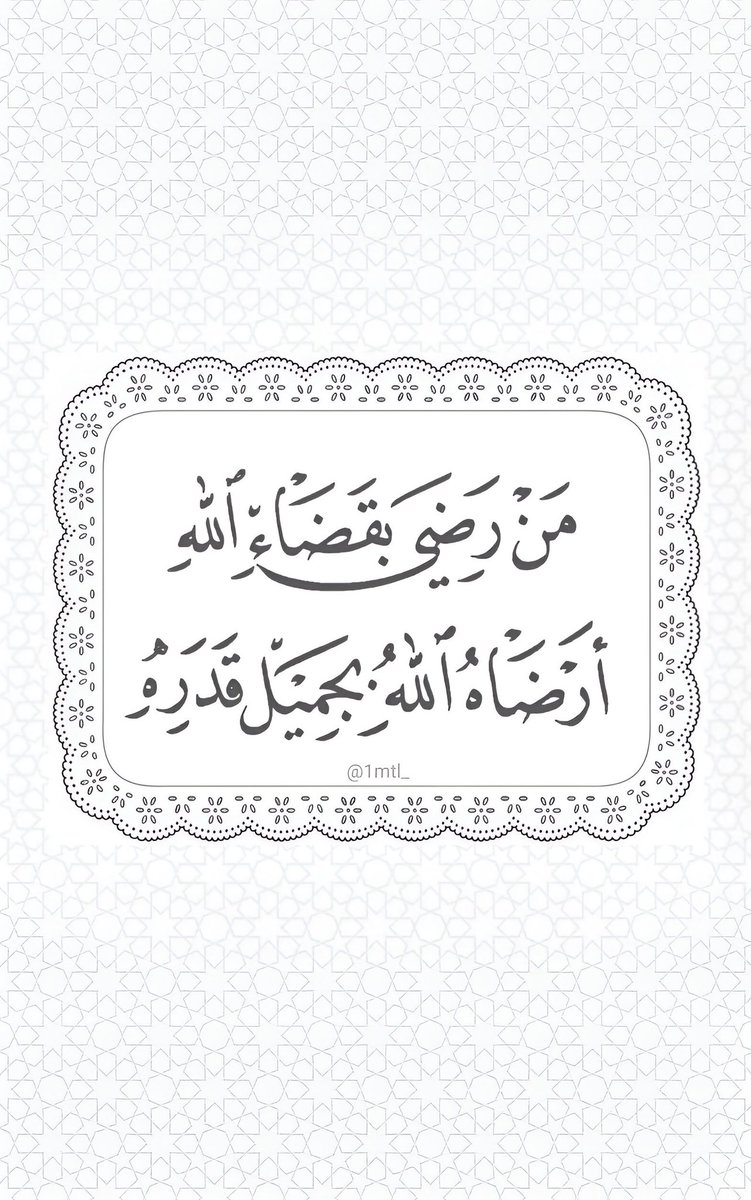 مَنْ رَضِيَ بَقَضَاءِ ٱللهِ
أَرْضَاهُ ٱللهُ بِجَمِيْلِ قَدَرِهِ
@1mtl_